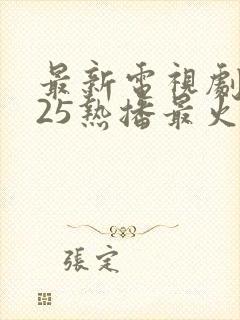 最新電視劇
25熱播最火
張定